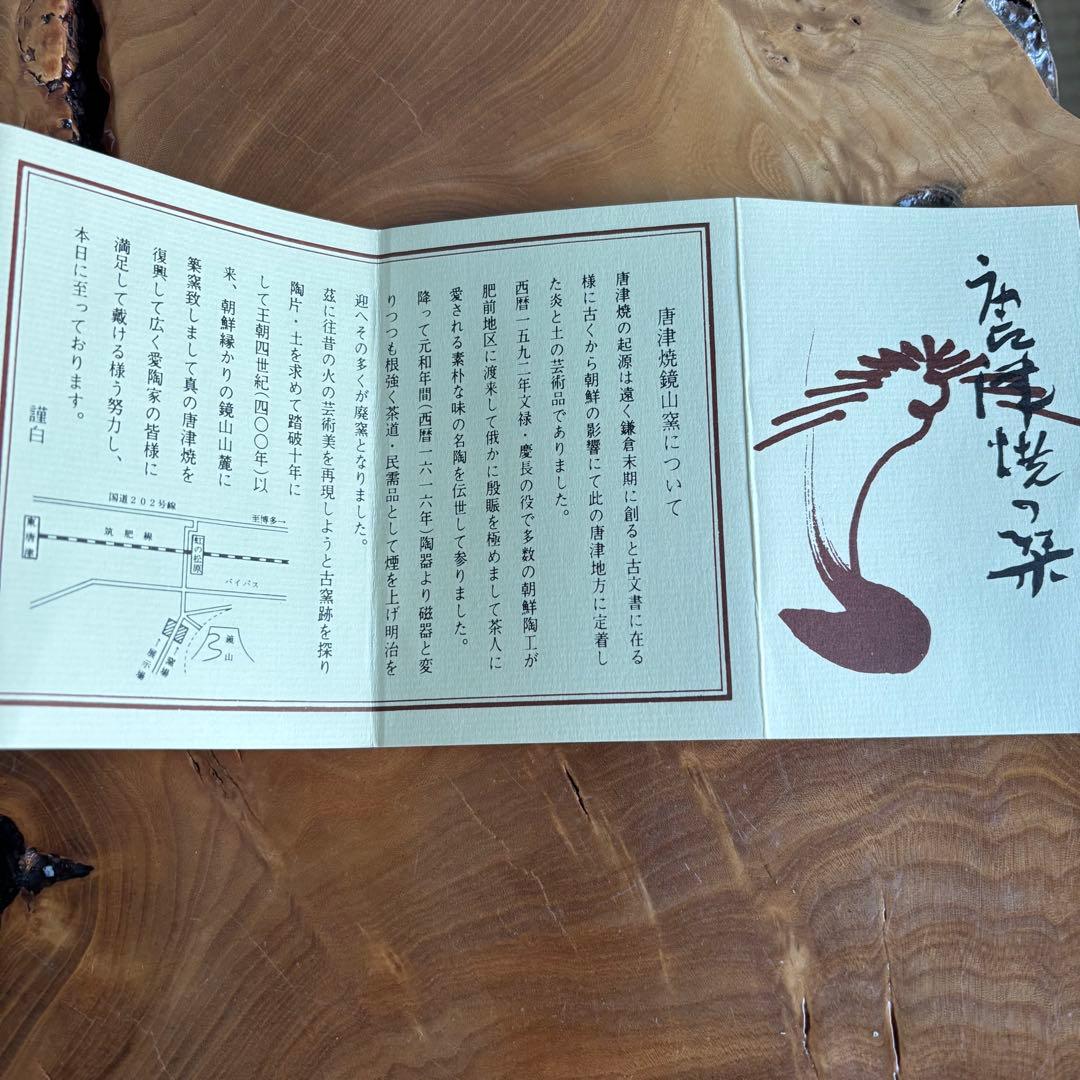 唐津焼の栞
唐津焼鏡山窯について
唐津焼の起源は遠く鎌倉末期に創ると古文書に在る
様に古くから朝鮮の影響にて此の唐津地方に定着し
た炎と土の芸術品でありました。
西暦一五九二年文禄・慶長の役で多数の朝鮮陶工が
肥前地区に渡来して俄かに殷賑を極めまして茶人に
愛される素朴な味の名陶を伝世して参りました。
降って元和年間(西暦一六一六年)陶器より磁器と変
りつつも根強く茶道・民需品として煙を上げ明治を
迎へその多くが廃窯となりました。
茲に往昔の火の芸術美を再現しようと古窯跡を探り
陶片・土を求めて踏破十年に
して王朝四世紀(四〇〇年)以
来、朝鮮縁かりの鏡山山麓に
築窯致しまして真の唐津焼を
復興して広く愛陶家の皆様に
満足して戴ける様う努力し、
本日に至っております。
謹白
国道202号線
至博多→
筑肥線
東唐津
虹の松原
バイパス
鏡山
窯場
展示場